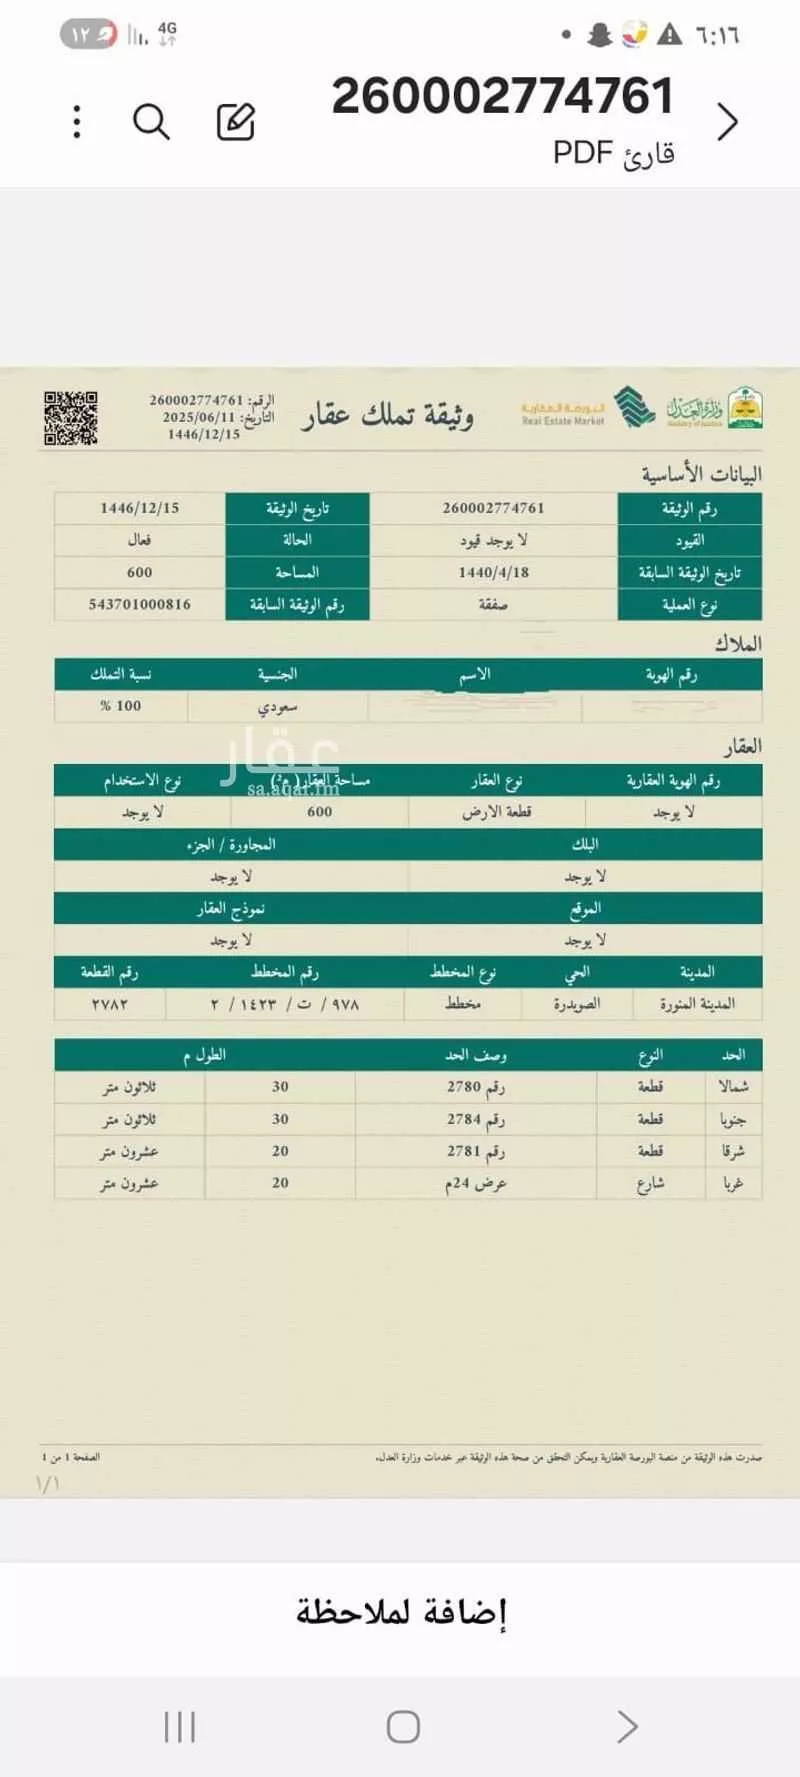 ٦:١٦
4G
١٢
260002774761
قارئ PDF
وزارة العدل
Ministry of Justice
البورصة العقارية
Real Estate Market
وثيقة تملك عقار
الرقم: 260002774761
التاريخ: 2025/06/11
1446/12/15
البيانات الأساسية
رقم الوثيقة 260002774761 تاريخ الوثيقة 1446/12/15
القيود لا يوجد قيود الحالة فعال
تاريخ الوثيقة السابقة 1440/4/18 المساحة 600
نوع العملية صفقة رقم الوثيقة السابقة 543701000816
الملاك
رقم الهوية الاسم الجنسية نسبة التملك
سعودي 100 %
العقار
رقم الهوية العقارية نوع العقار مساحة العقار( م²) نوع الاستخدام
لا يوجد قطعة الارض 600 لا يوجد
عقار
sa.aqar.fm
البلك المجاورة / الجزء
لا يوجد لا يوجد
الموقع نموذج العقار
لا يوجد لا يوجد
المدينة الحي نوع المخطط رقم المخطط رقم القطعة
المدينة المنورة الصويدرة مخطط ٩٧٨ / ت / ١٤٢٣ / ٢ ٢٧٨٢
الحد النوع وصف الحد الطول م
شمالا قطعة رقم 2780 30 ثلاثون متر
جنوبا قطعة رقم 2784 30 ثلاثون متر
شرقا قطعة رقم 2781 20 عشرون متر
غربا شارع عرض 24م 20 عشرون متر
صدرت هذه الوثيقة من منصة البورصة العقارية ويمكن التحقق من صحة هذه الوثيقة عبر خدمات وزارة العدل.
الصفحة 1 من 1
١/١
إضافة لملاحظة